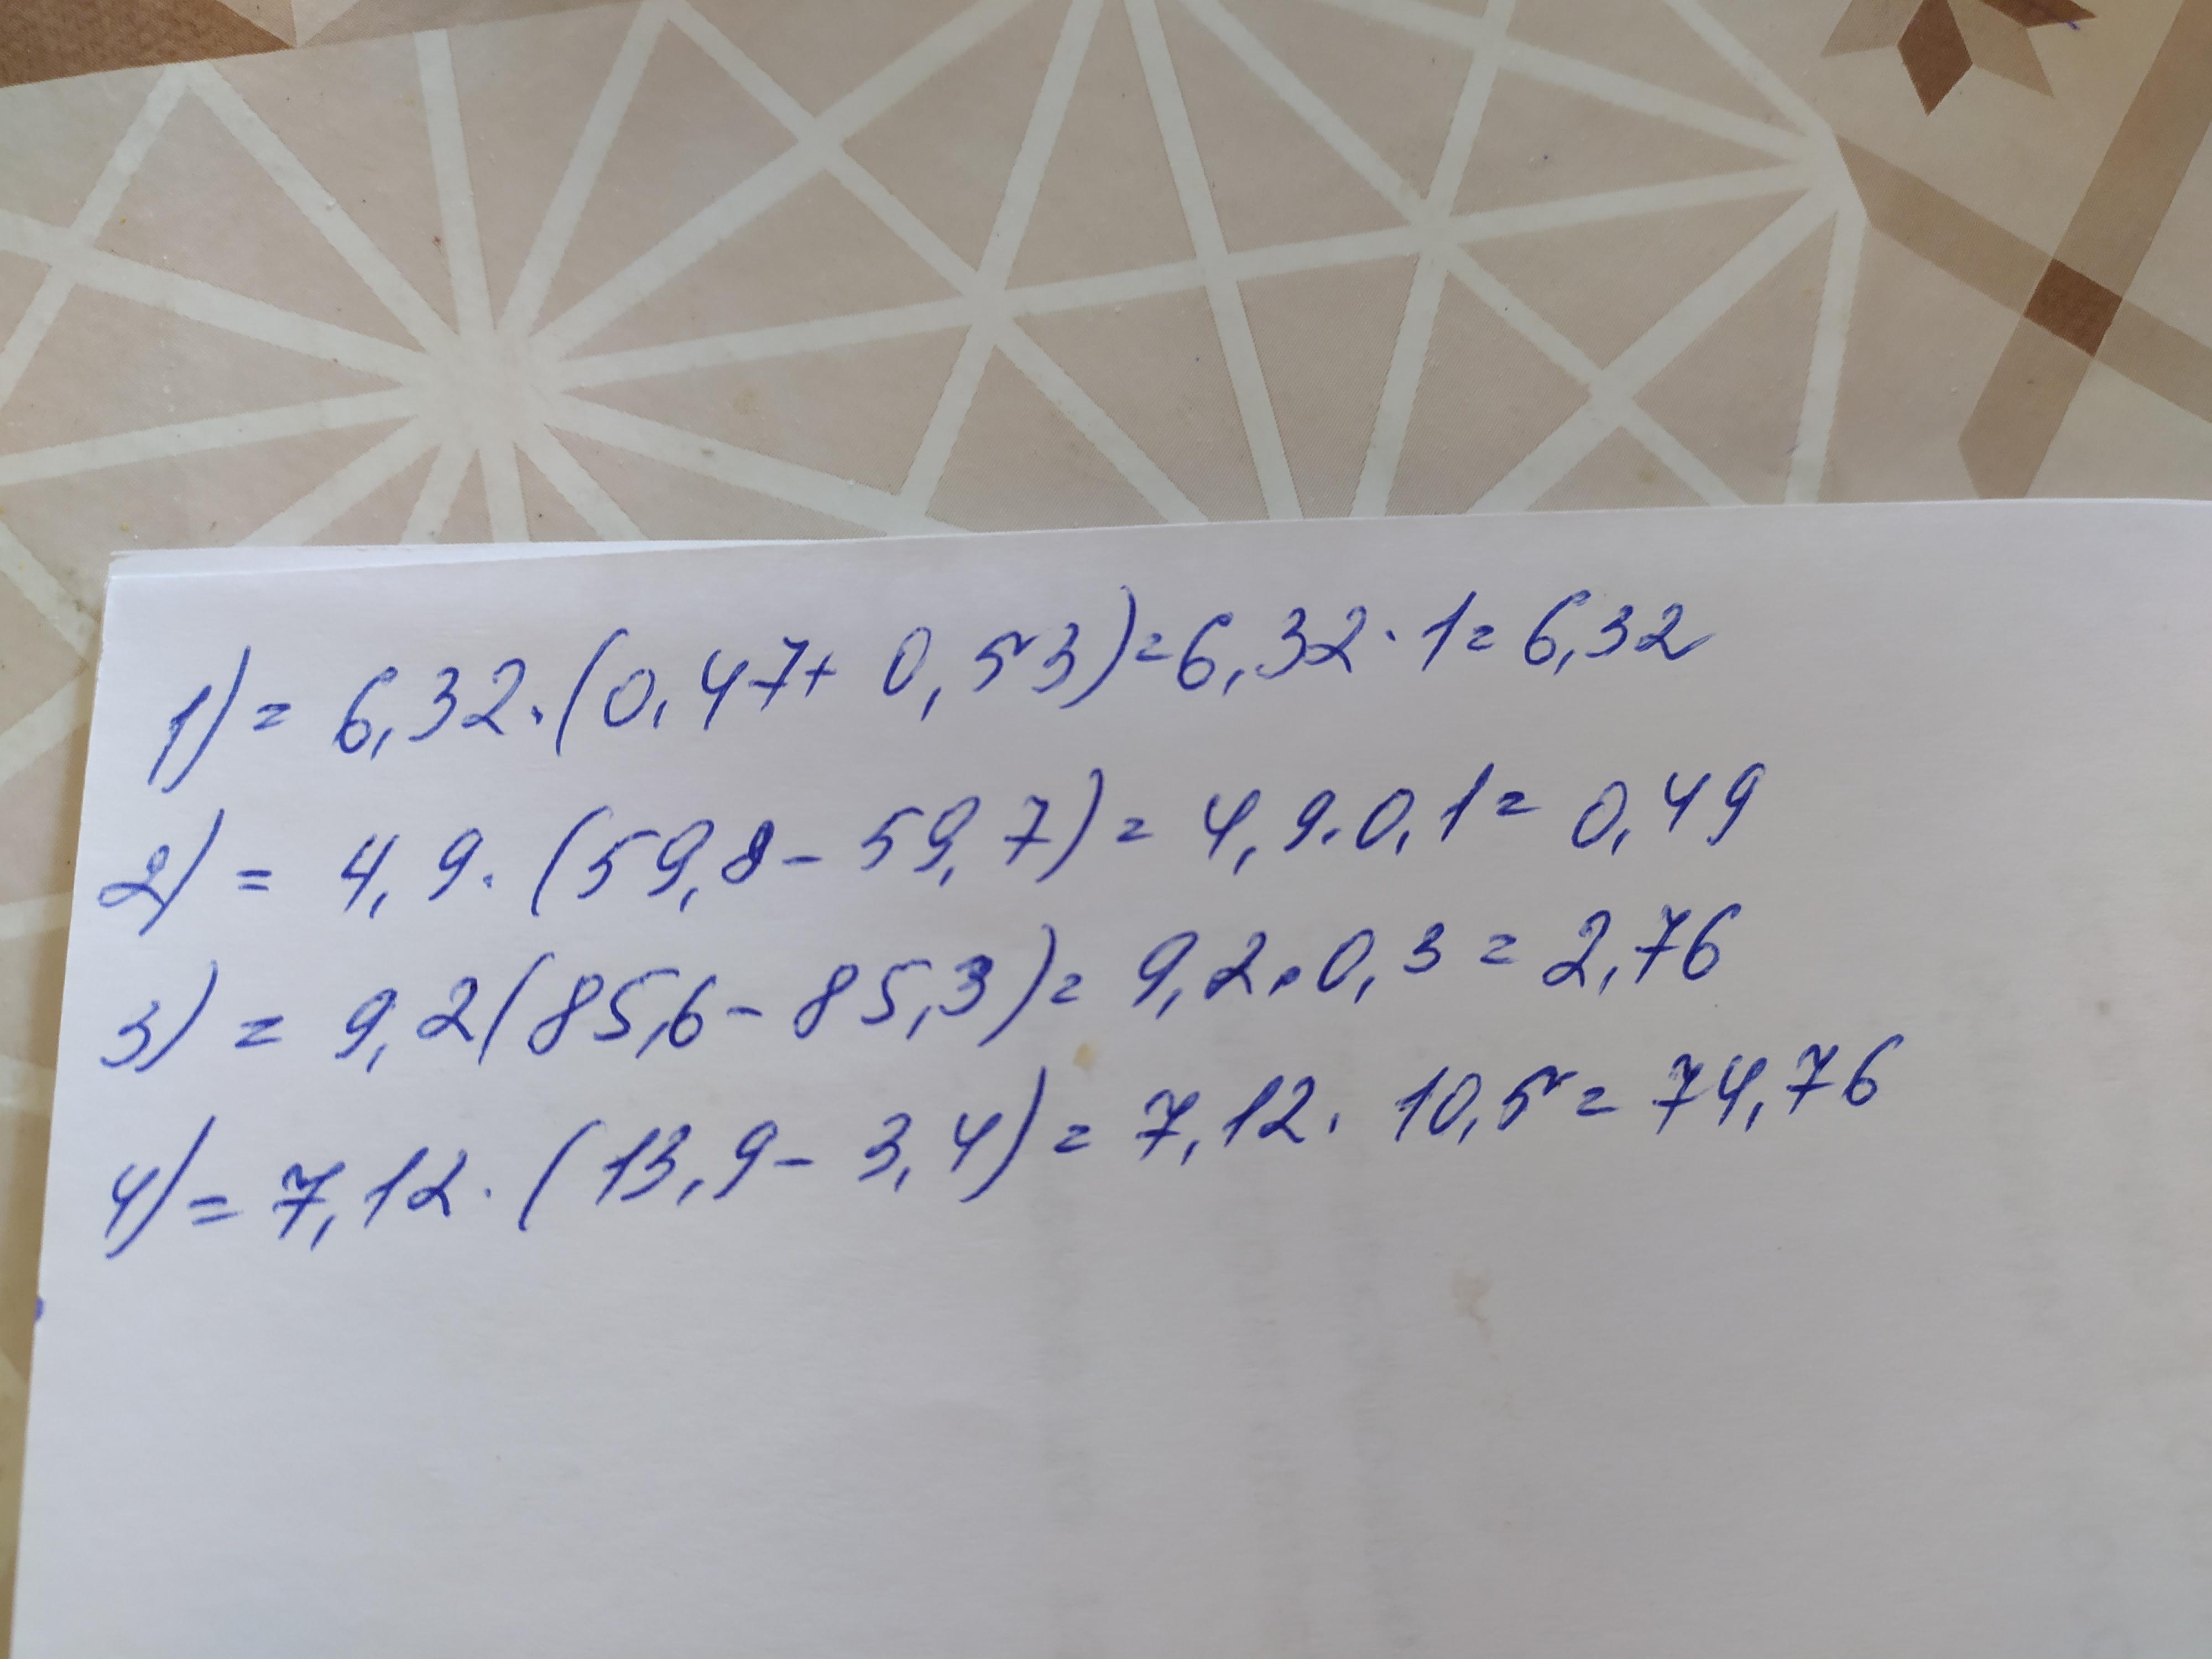 1) = 6,32 · (0,47 + 0,53) = 6,32 · 1 = 6,32
2) = 4,9 · (59,8 - 59,7) = 4,9 · 0,1 = 0,49
3) = 9,2 (85,6 - 85,3) = 9,2 · 0,3 = 2,76
4) = 7,12 · (13,9 - 3,4) = 7,12 · 10,5 = 74,76